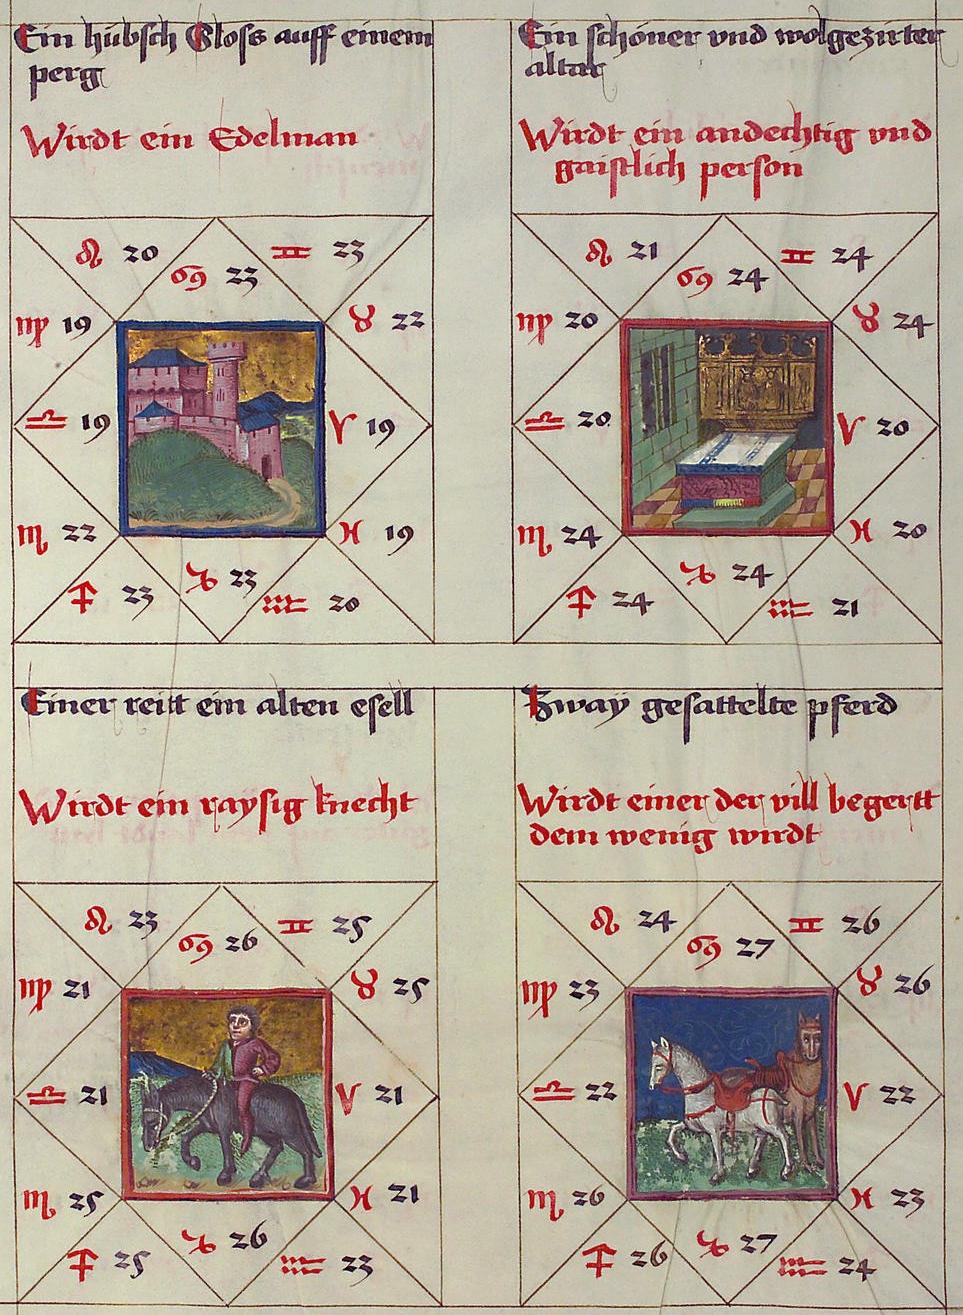 Ein hübsch Gloss auff einem
perg
Wirdt ein Edelman
♌ 20 ♋ 23 ♊ 23
♍ 19 ♉ 22
♎ 19 ♈ 19
♏ 22 ♓ 19
♐ 23 ♑ 23 ♒ 20
Ein schöner vnd wolgezirter
altar
Wirdt ein andechtig vnd
gaistlich person
♌ 21 ♋ 24 ♊ 24
♍ 20 ♉ 24
♎ 20 ♈ 20
♏ 24 ♓ 20
♐ 24 ♑ 24 ♒ 21
Einer reitt ein alten esell
Wirdt ein raysig knecht
♌ 23 ♋ 26 ♊ 25
♍ 21 ♉ 25
♎ 21 ♈ 21
♏ 25 ♓ 21
♐ 25 ♑ 26 ♒ 23
Zway gesattelte pferd
Wirdt einer der vill begertt
dem wenig wirdt
♌ 24 ♋ 27 ♊ 26
♍ 23 ♉ 26
♎ 22 ♈ 22
♏ 26 ♓ 23
♐ 26 ♑ 27 ♒ 24